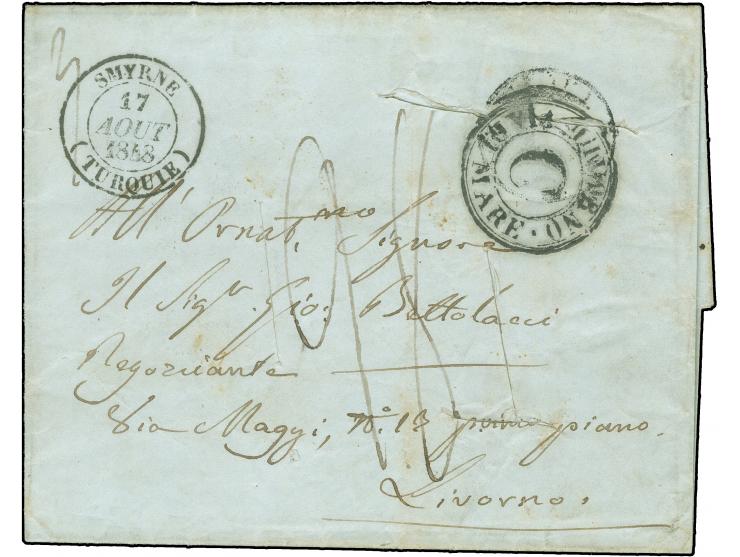 SMYRNE
17
AOUT
1848
(TURQUIE)
C
All' Ornat.mo Signore
Il Sigr. Gio: Bettolacci
Negoziante
Via Maggi, No. 13 primo piano.
Livorno.